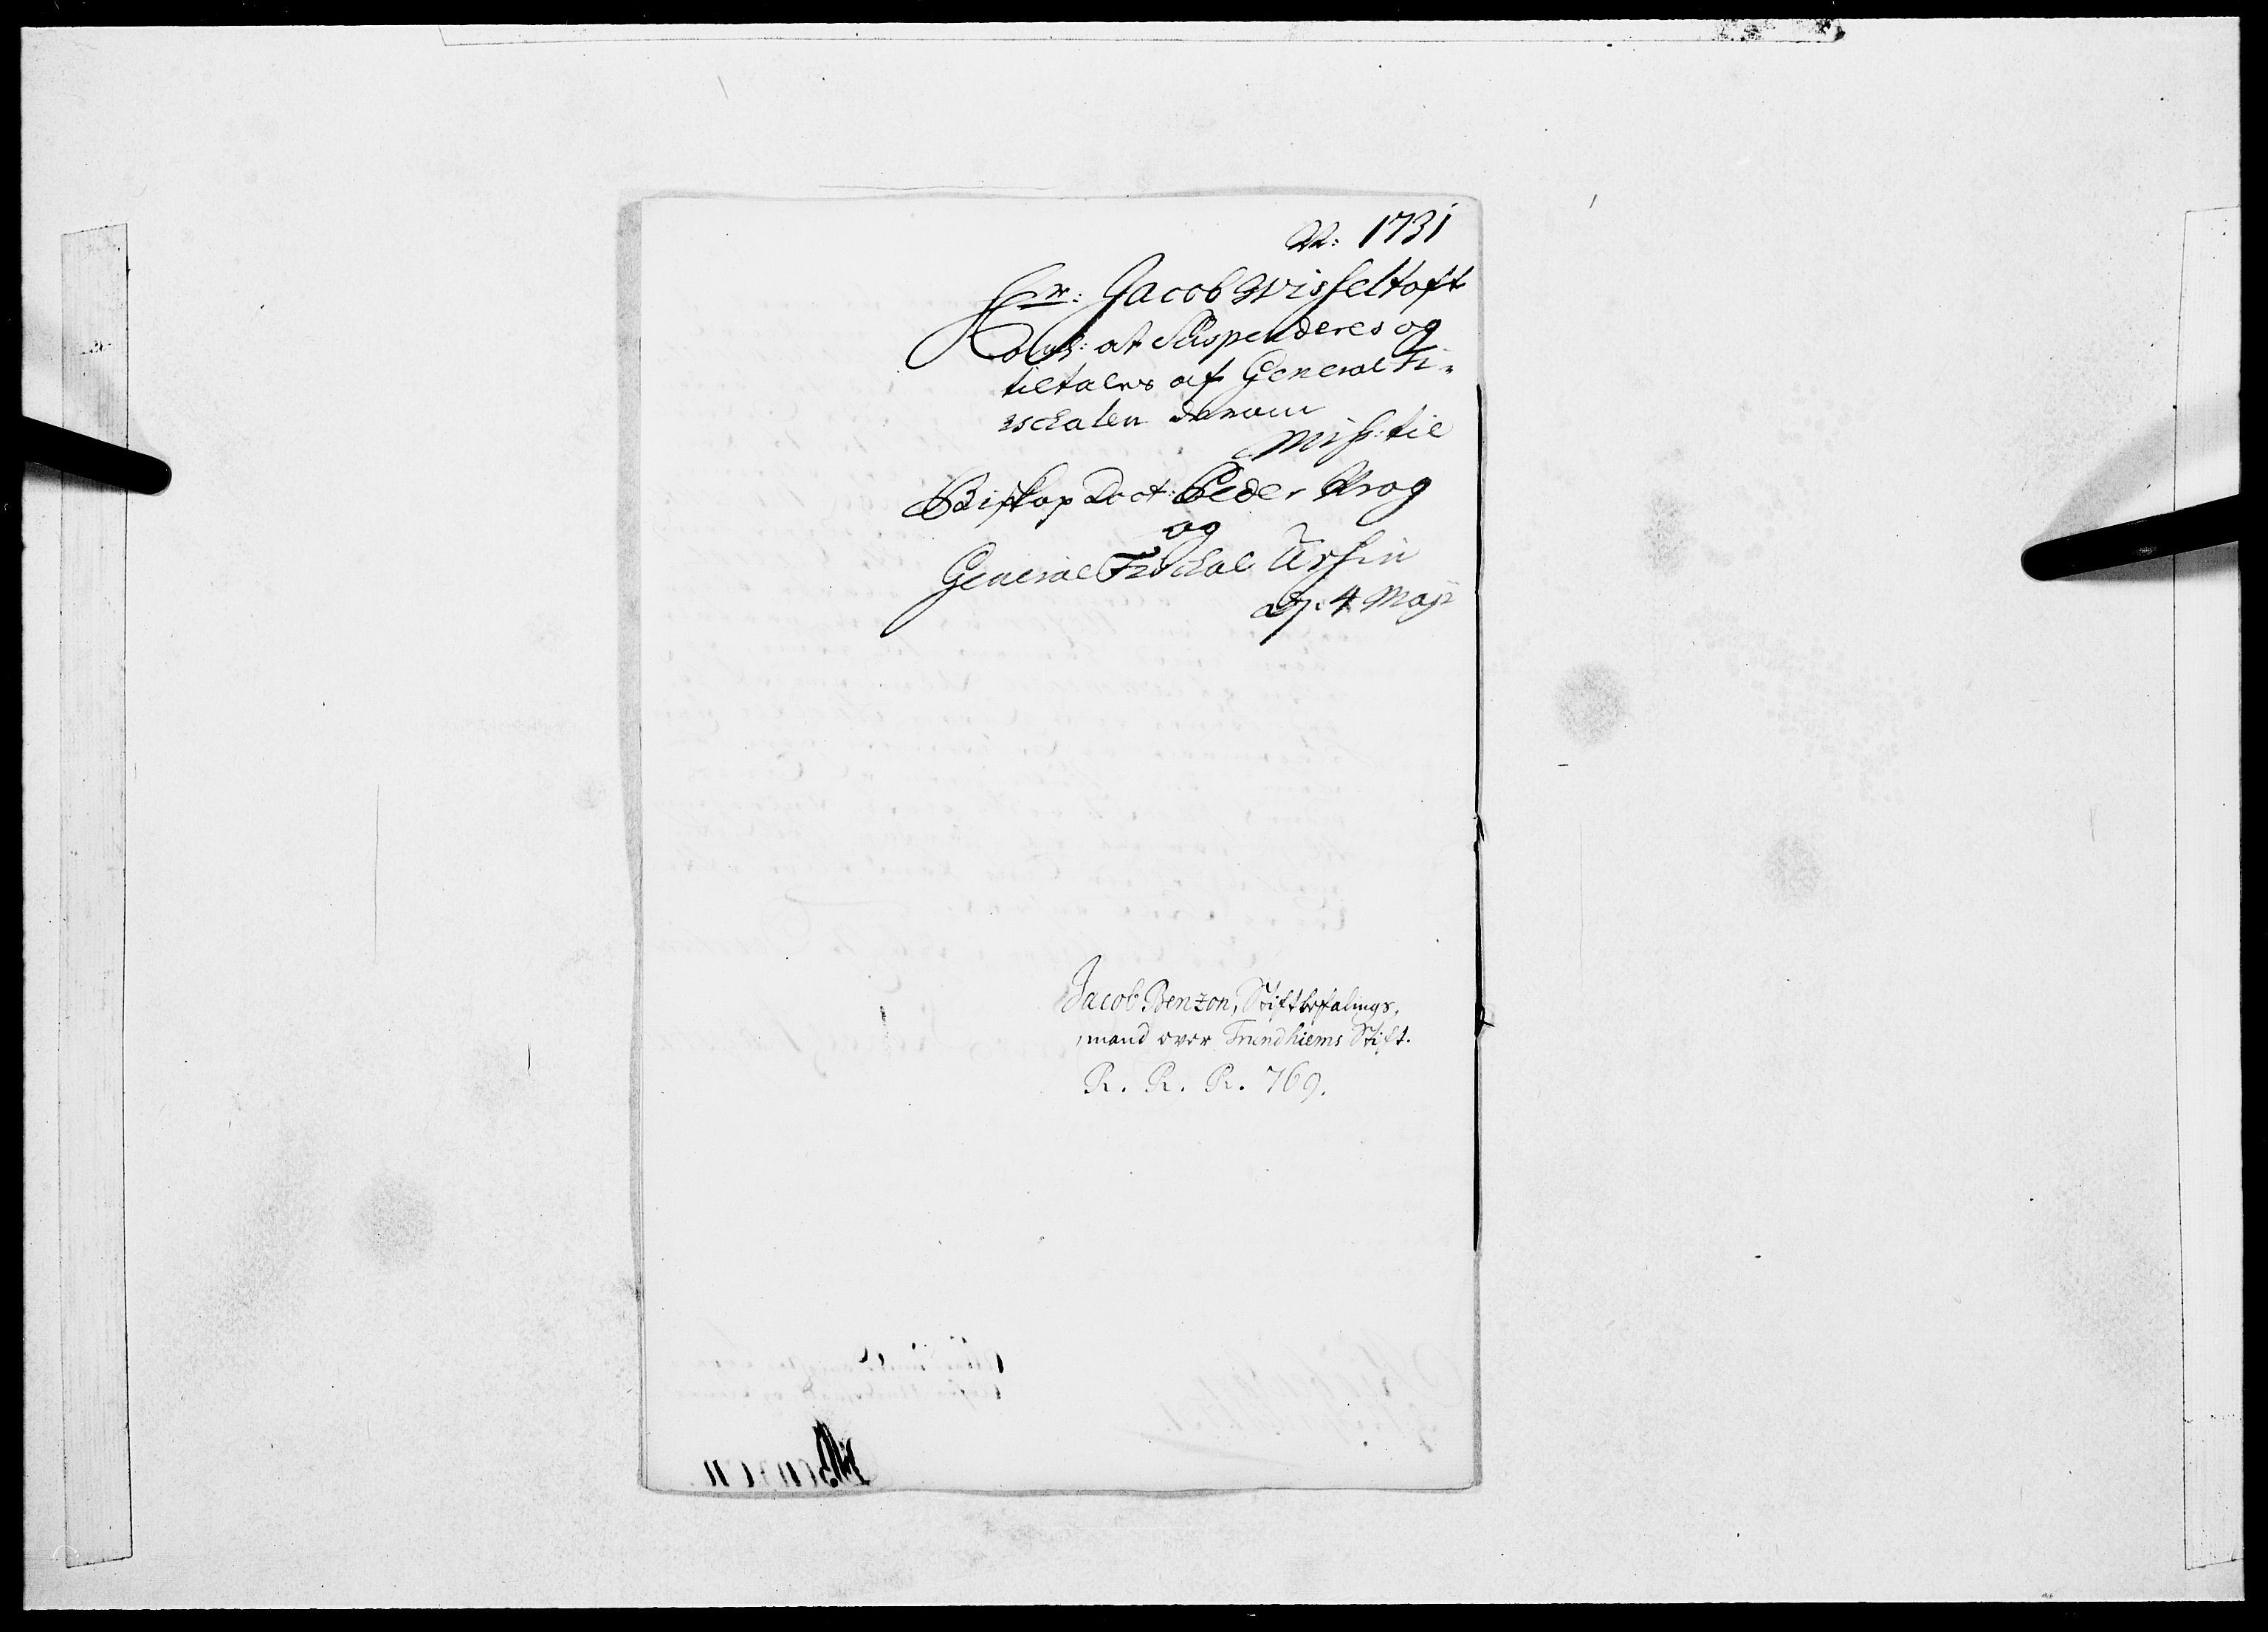 1731
Hr: Jacob Wisseltoft
at Suspenderes og
tiltales af General Fi-
schalen derom
Miss: til
Biskop Doct: Peder Krog
og
General Fischal Ursin
4 Maji
Jacob Benzon, Stiftbefalings,
mand over Trundhiems Stift.
R. R. R. 769.